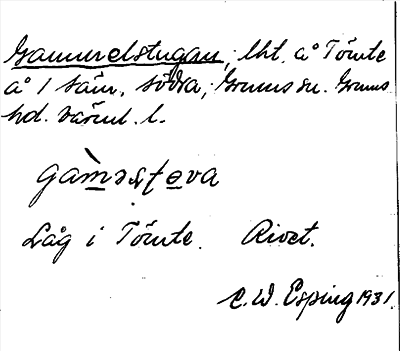 Gammelstugan; lht. å Tömte
å 1 säm. södra; Grums sn. Grums
hd. Värml. l.
gàməsteva
Låg i Tömte. Rivet.
C. W. Esping 1931.